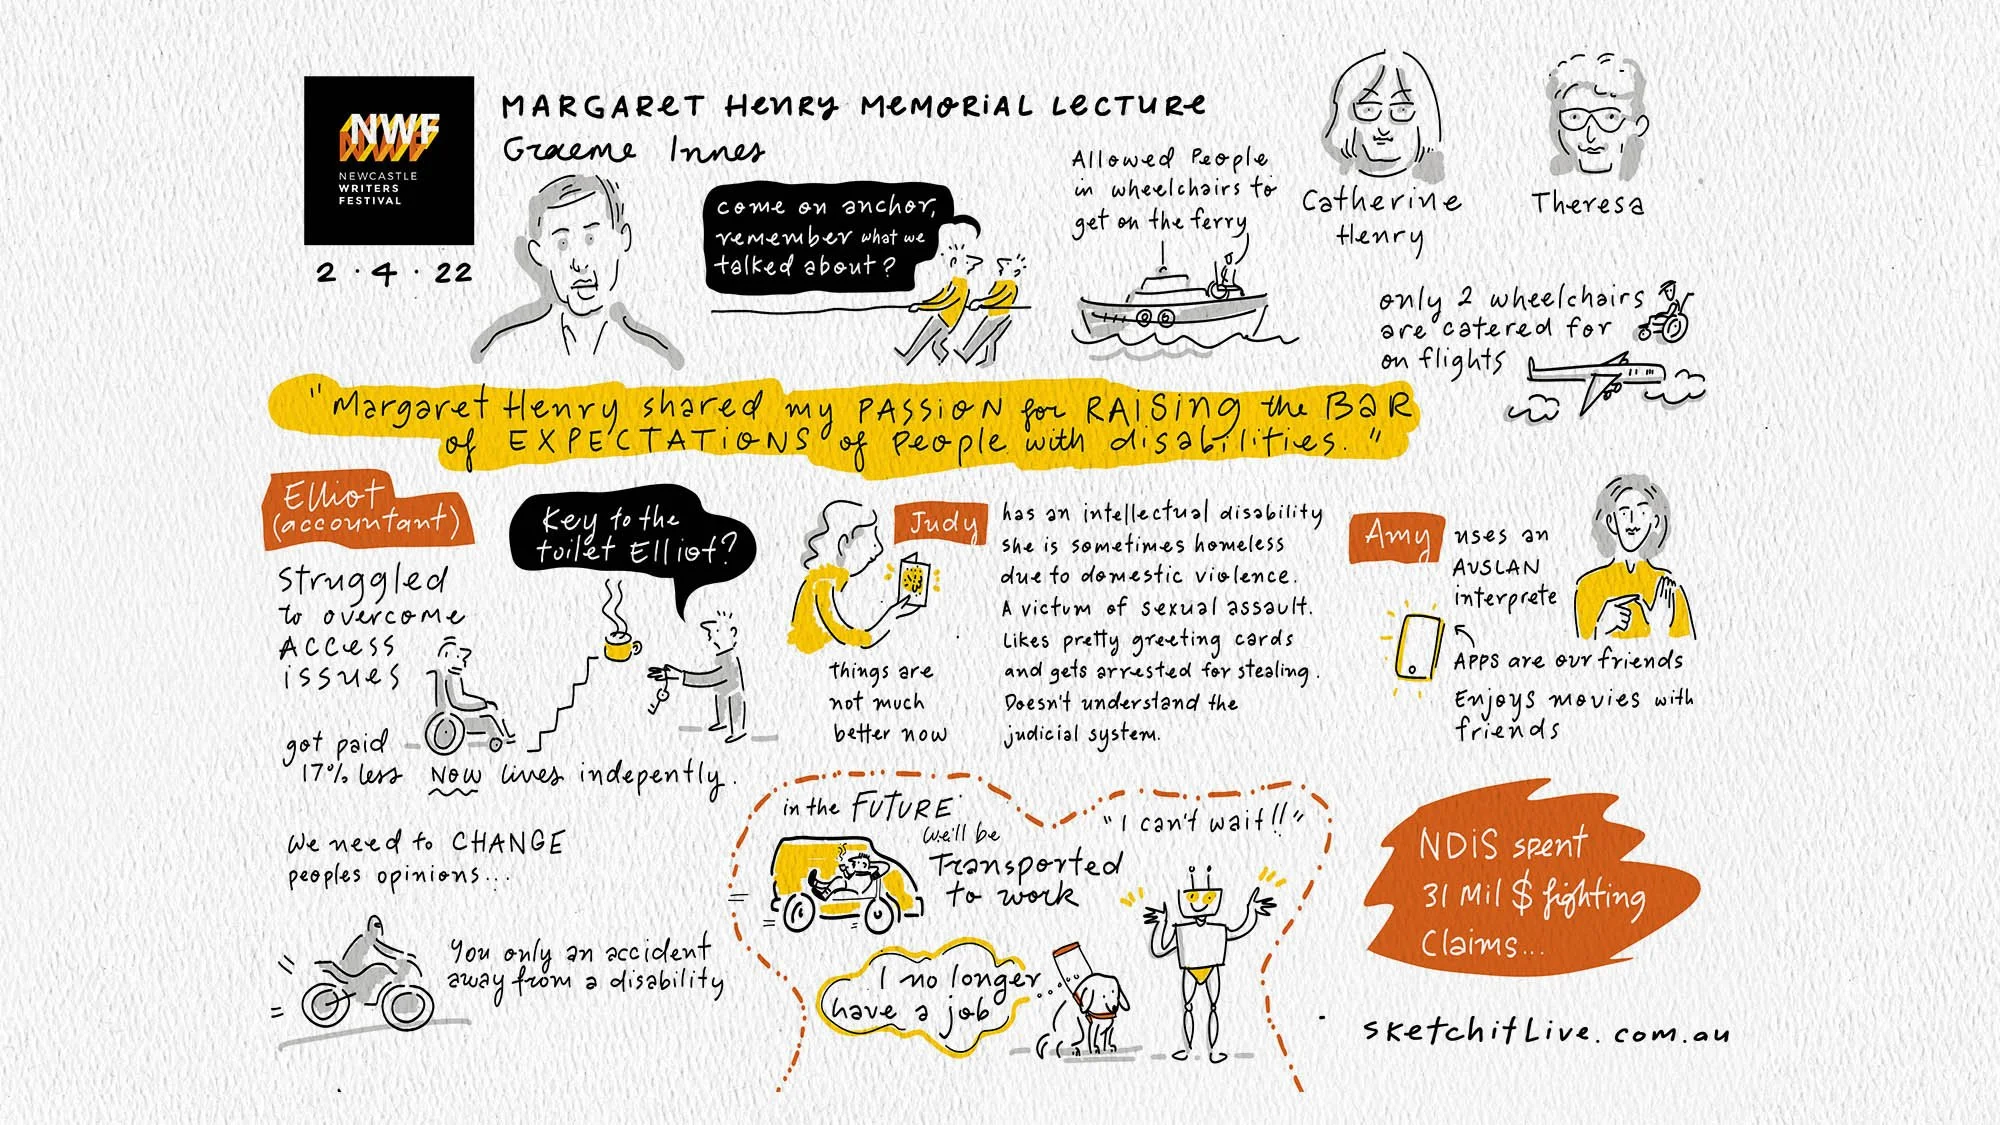 NWF
NEWCASTLE
WRITERS
FESTIVAL
2 · 4 · 22
MARGARET HENRY MEMORIAL LECTURE
Graeme Innes
come on anchor,
remember what we
talked about?
Allowed People
in wheelchairs to
get on the ferry
Catherine
Henry
Theresa
only 2 wheelchairs
are catered for
on flights
"Margaret Henry shared my PASSION for RAISING the BAR
of EXPECTATIONS of People with disabilities."
Elliot
(accountant)
struggled
to overcome
ACCESS
issues
got paid
17% less
Now lives indepently.
Key to the
toilet Elliot?
Judy
has an intellectual disability
she is sometimes homeless
due to domestic violence.
A victum of sexual assault.
Likes pretty greeting cards
and gets arrested for stealing.
Doesn't understand the
judicial system.
things are
not much
better now
Amy
uses an
AUSLAN
interprete
APPS are our friends
Enjoys movies with
friends
We need to CHANGE
peoples opinions...
You only an accident
away from a disability
in the FUTURE
we'll be
Transported
to work
"I can't wait!!"
I no longer
have a job
NDiS spent
31 Mil $ fighting
Claims...
sketchitLive.com.au